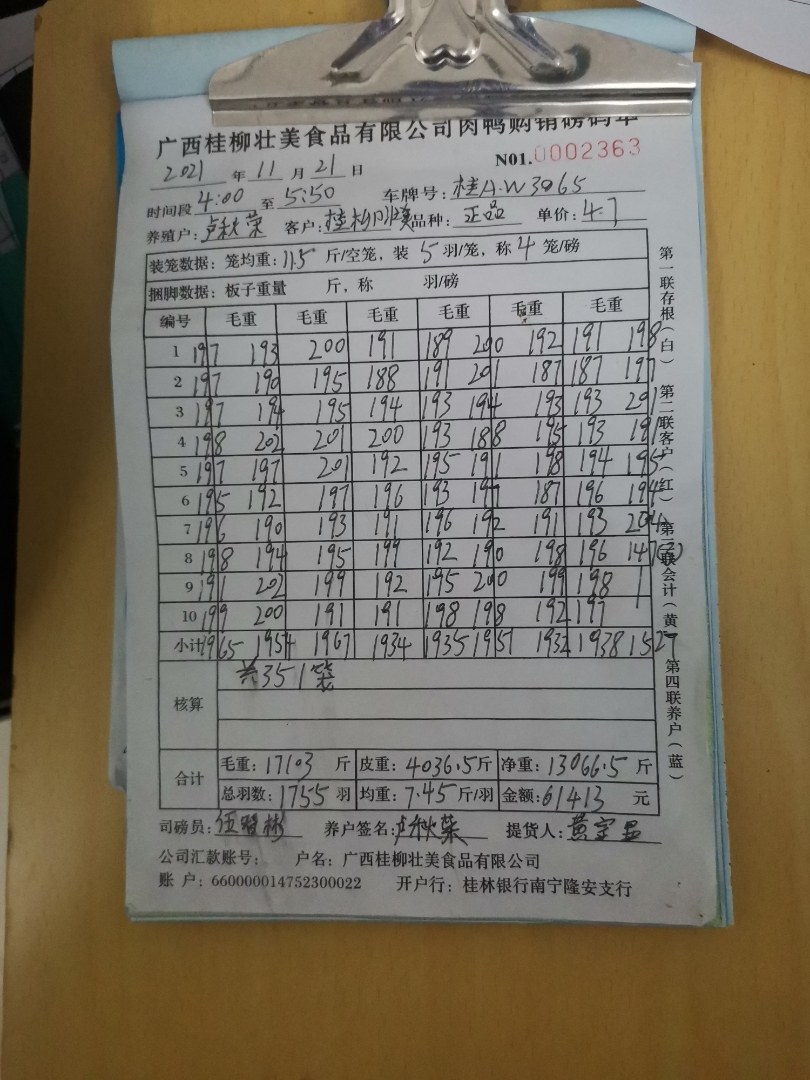 广西桂柳壮美食品有限公司肉鸭购销磅码单
NO1.0002363
2021 年 11 月 21 日
时间段 4:00 至 5:50 车牌号: 桂A·W3065
养殖户: 卢秋荣 客户: 桂柳 品种: 正品 单价: 4.7
装笼数据: 笼均重: 11.5 斤/空笼, 装 5 羽/笼, 称 4 笼/磅
捆脚数据: 板子重量 斤, 称 羽/磅
编号 毛重 毛重 毛重 毛重 毛重 毛重
1 197 193 200 191 189 200 192 191 198
2 197 190 195 188 191 201 187 187 197
3 197 194 195 194 193 194 193 193 201
4 198 202 201 200 193 188 195 193 191
5 197 197 201 192 195 191 198 194 195
6 195 192 197 196 193 197 187 196 194
7 196 190 193 191 196 192 191 193 204
8 198 194 195 199 192 190 198 196 147(三)
9 191 202 199 192 195 200 199 198
10 199 200 191 191 198 198 192 197
小计 1965 1954 1967 1934 1935 1951 1932 1938 1527
核算 共351笼
合计 毛重: 17103 斤 皮重: 4036.5 斤 净重: 13066.5 斤
总羽数: 1755 羽 均重: 7.45 斤/羽 金额: 61413 元
司磅员: 伍 彬 养户签名: 卢秋荣 提货人: 黄宝
公司汇款账号: 户名: 广西桂柳壮美食品有限公司
账 户: 660000014752300022 开户行: 桂林银行南宁隆安支行
第一联存根(白) 第二联客户(红) 第三联会计(黄) 第四联养户(蓝)